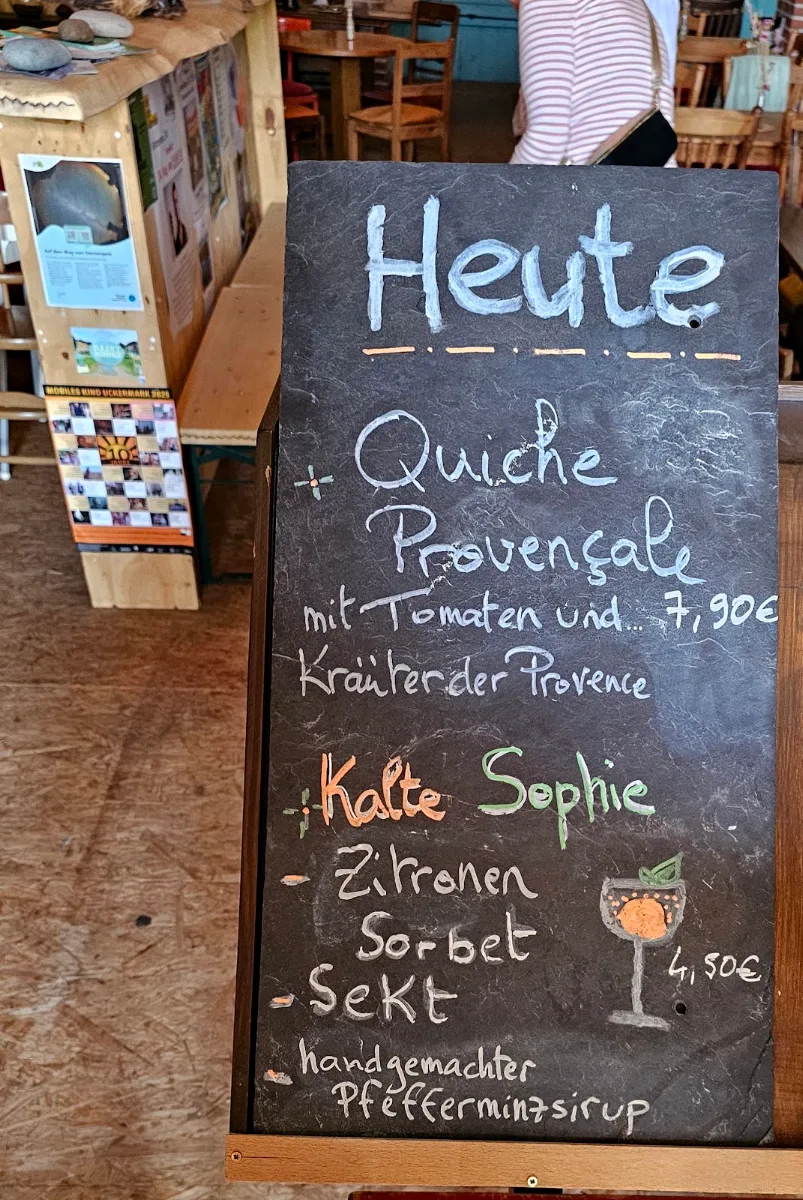 Heute
Quiche
Provençale
mit Tomaten und... 7,90€
Kräuter der Provence
Kalte Sophie
- Zitronen
Sorbet
- Sekt
4,50€
- handgemachter
Pfefferminzsirup
MOBILES KINO UCKERMARK 2025
10